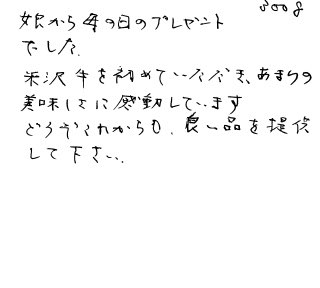 300g
娘から母の日のプレゼント
でした。
米沢牛を初めていただき、あまりの
美味しさに感動しています
どうぞこれからも、良い品を提供
して下さい。